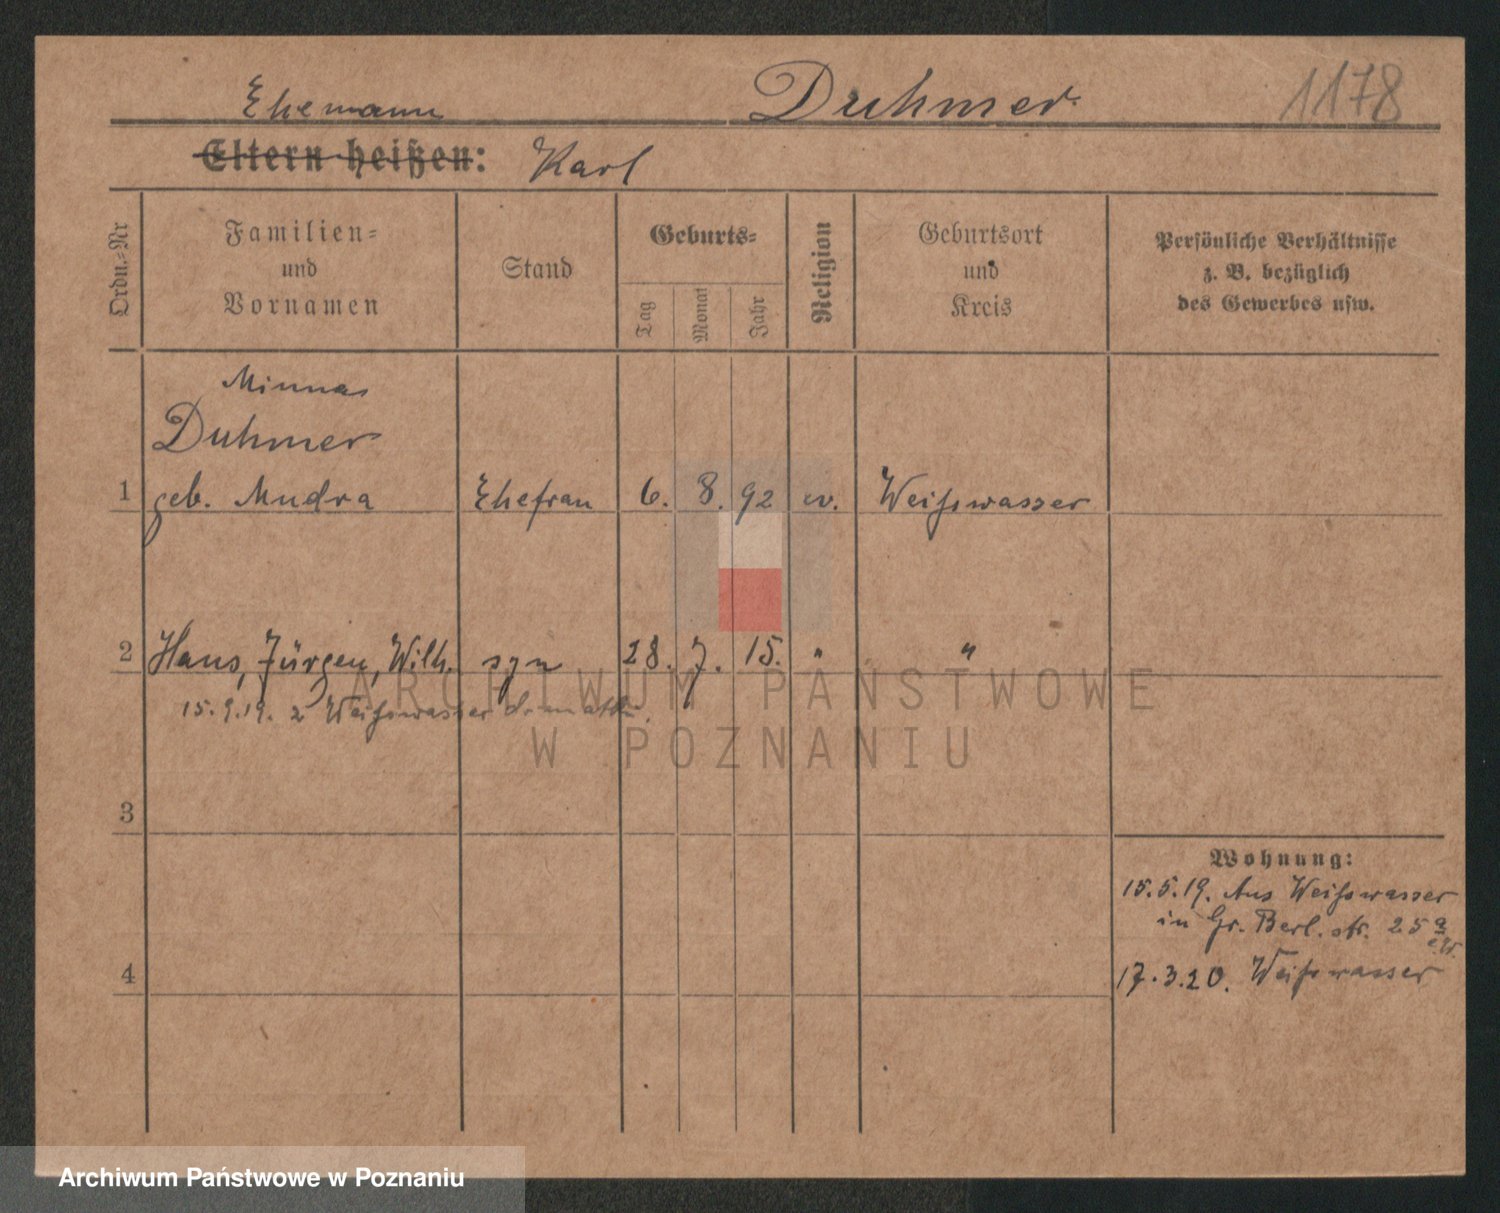 Ehemann Duhmer 1178
Eltern heißen: Karl
Ordn.-Nr
Familien-
und
Vornamen
Stand
Geburts-
Tag
Monat
Jahr
Religion
Geburtsort
und
Kreis
Persönliche Verhältnisse
z. B. bezüglich
des Gewerbes usw.
Minna
Duhmer
1 geb. Mudra Ehefrau 6. 8. 92 ev. Weißwasser
2 Hans, Jürgen, Wilh. syn 28. 7. 15. " "
15.9.19. z Weißwasser do matki.
3
4
Wohnung:
15.5.19. Aus Weißwasser
in Gr. Berl. str. 25
17.3.20. Weißwasser
ARCHIWUM PAŃSTWOWE
W POZNANIU
Archiwum Państwowe w Poznaniu